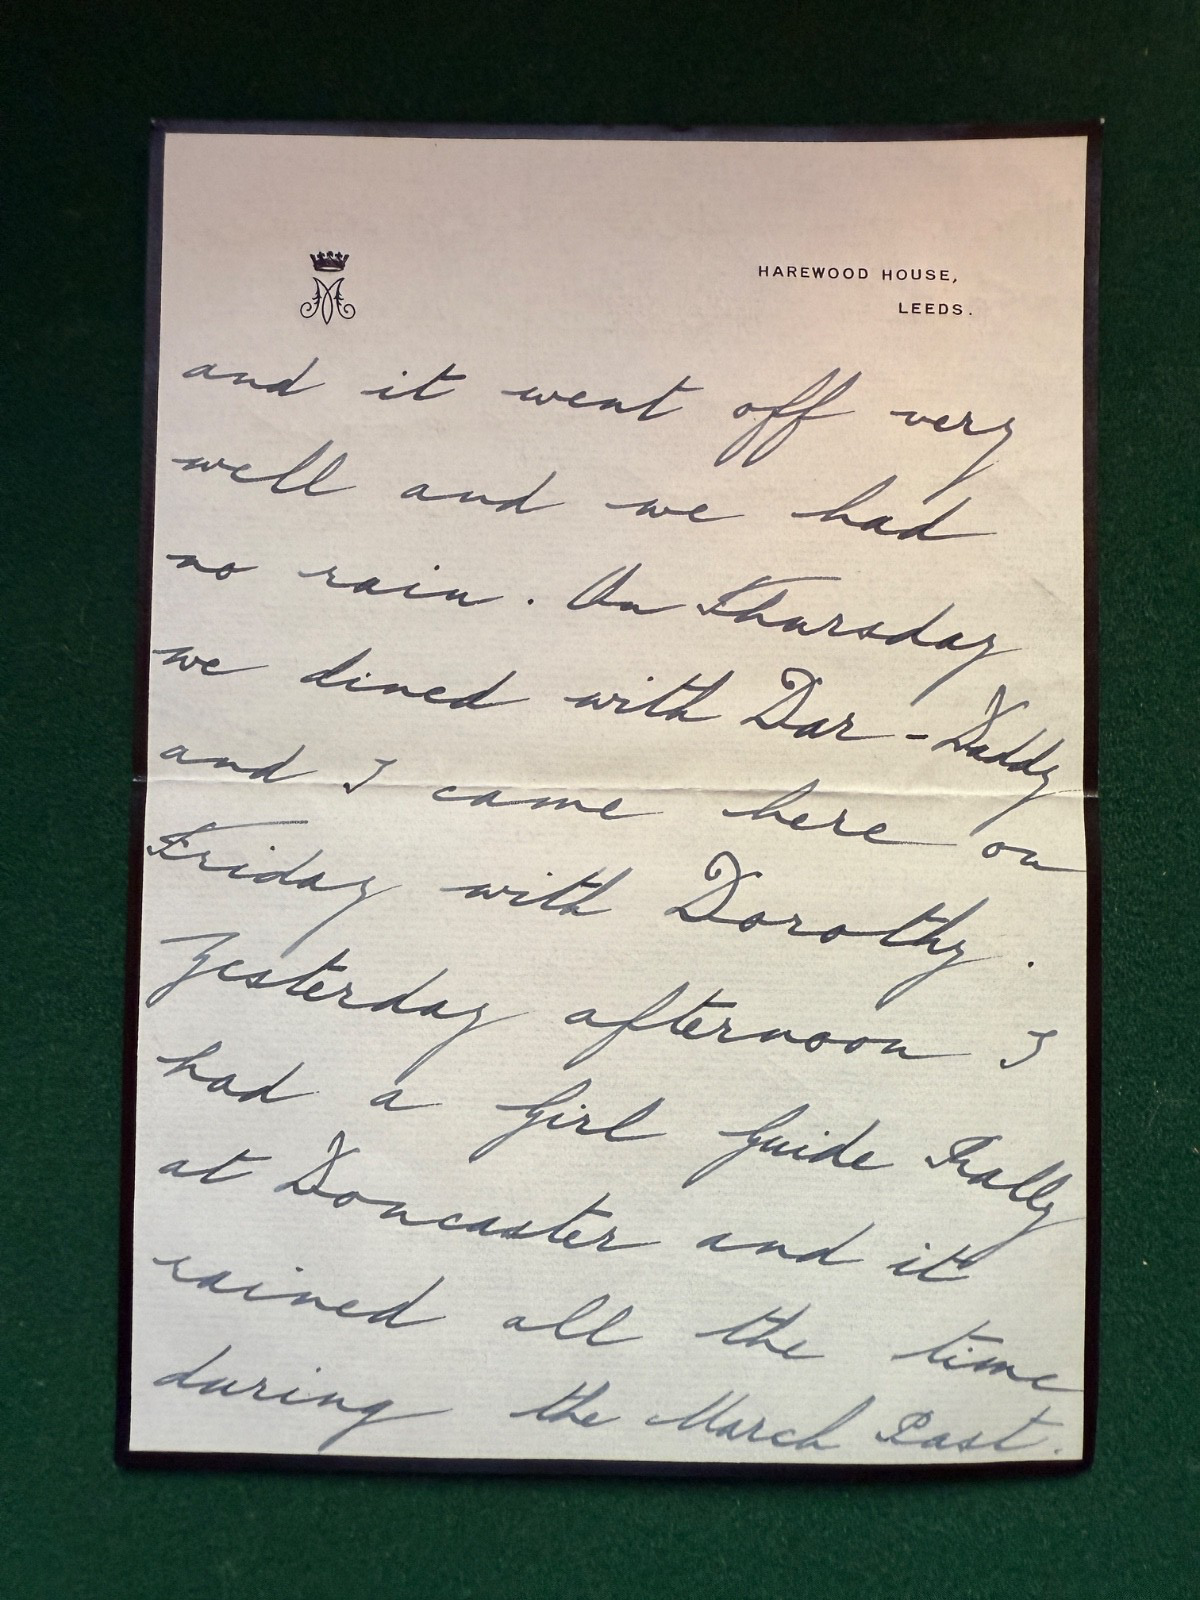 HAREWOOD HOUSE,
LEEDS.
and it went off very
well and we had
no rain. On Thursday
we dined with Dar-Daddy
and I came here on
Friday with Dorothy.
Yesterday afternoon I
had a Girl Guide Rally
at Doncaster and it
rained all the time
during the March Past.